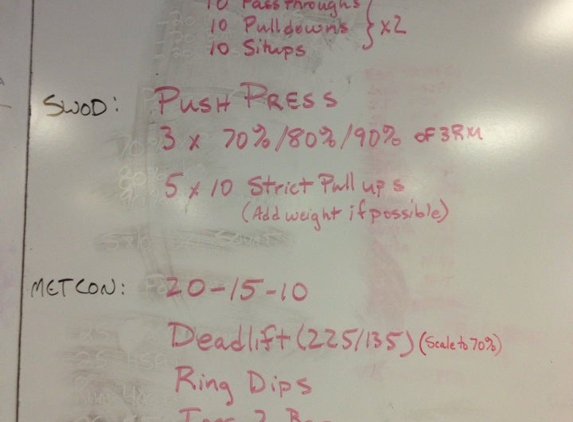 10 Passthroughs
10 Pulldowns } x2
10 Situps
SWOD: PUSH PRESS
3 x 70%/80%/90% of 3RM
5 x 10 Strict Pull ups
(Add weight if possible)
METCON: 20-15-10
Deadlift (225/135) (Scale to 70%)
Ring Dips
Toes 2 Bar